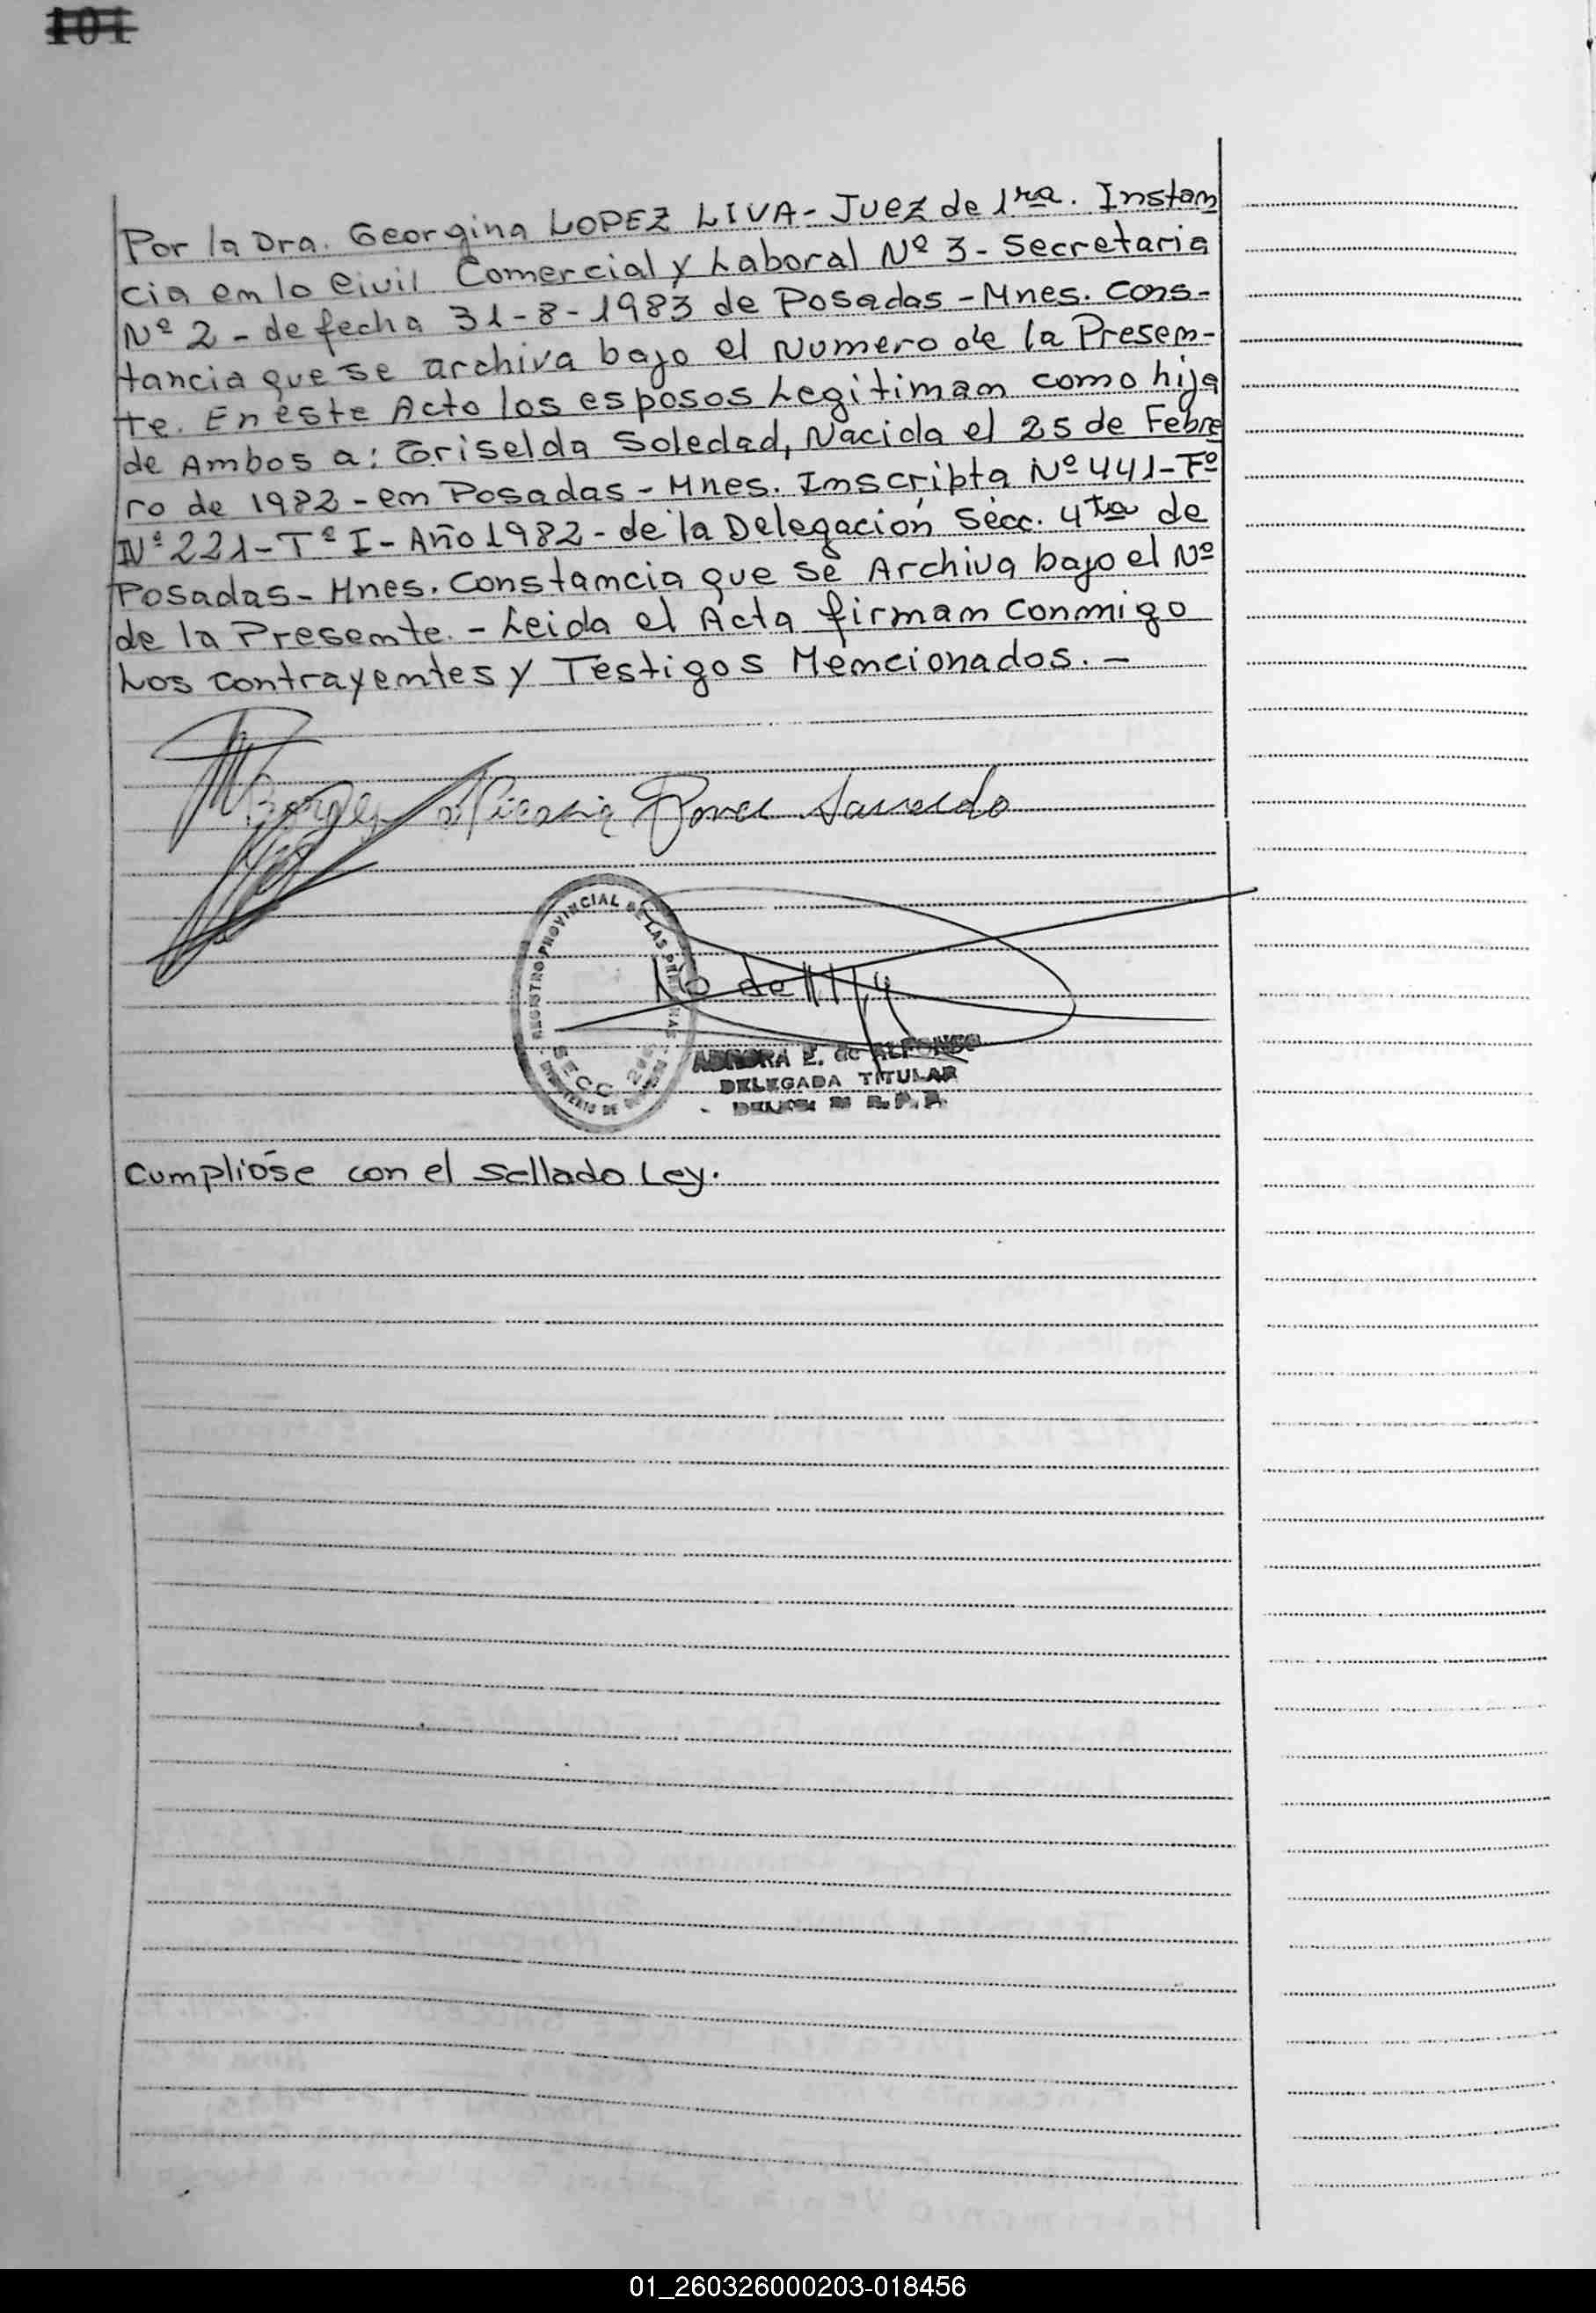 101
Por la Dra. Georgina LOPEZ LIVA - Juez de 1ra. Instan
cia en lo Civil Comercial y Laboral Nº 3 - Secretaria
Nº 2 - de fecha 31-8-1983 de Posadas - Mnes. Cons-
tancia que se archiva bajo el Numero de la Presen-
te. En este Acto los esposos Legitiman como hija
de Ambos a: Griselda Soledad, Nacida el 25 de Febre
ro de 1982 - en Posadas - Mnes. Inscripta Nº 441 - Fº
Nº 221 - Tº I - Año 1982 - de la Delegación Secc. 4ta de
Posadas - Mnes. Constancia que se Archiva bajo el Nº
de la Presente. - Leida el Acta firman conmigo
Los contrayentes y Testigos Mencionados. -
REGISTRO PROVINCIAL DE LAS PERSONAS
SECC.
AURORA E. de ALFONSO
DELEGADA TITULAR
Cumplióse con el sellado Ley.
01_260326000203-018456